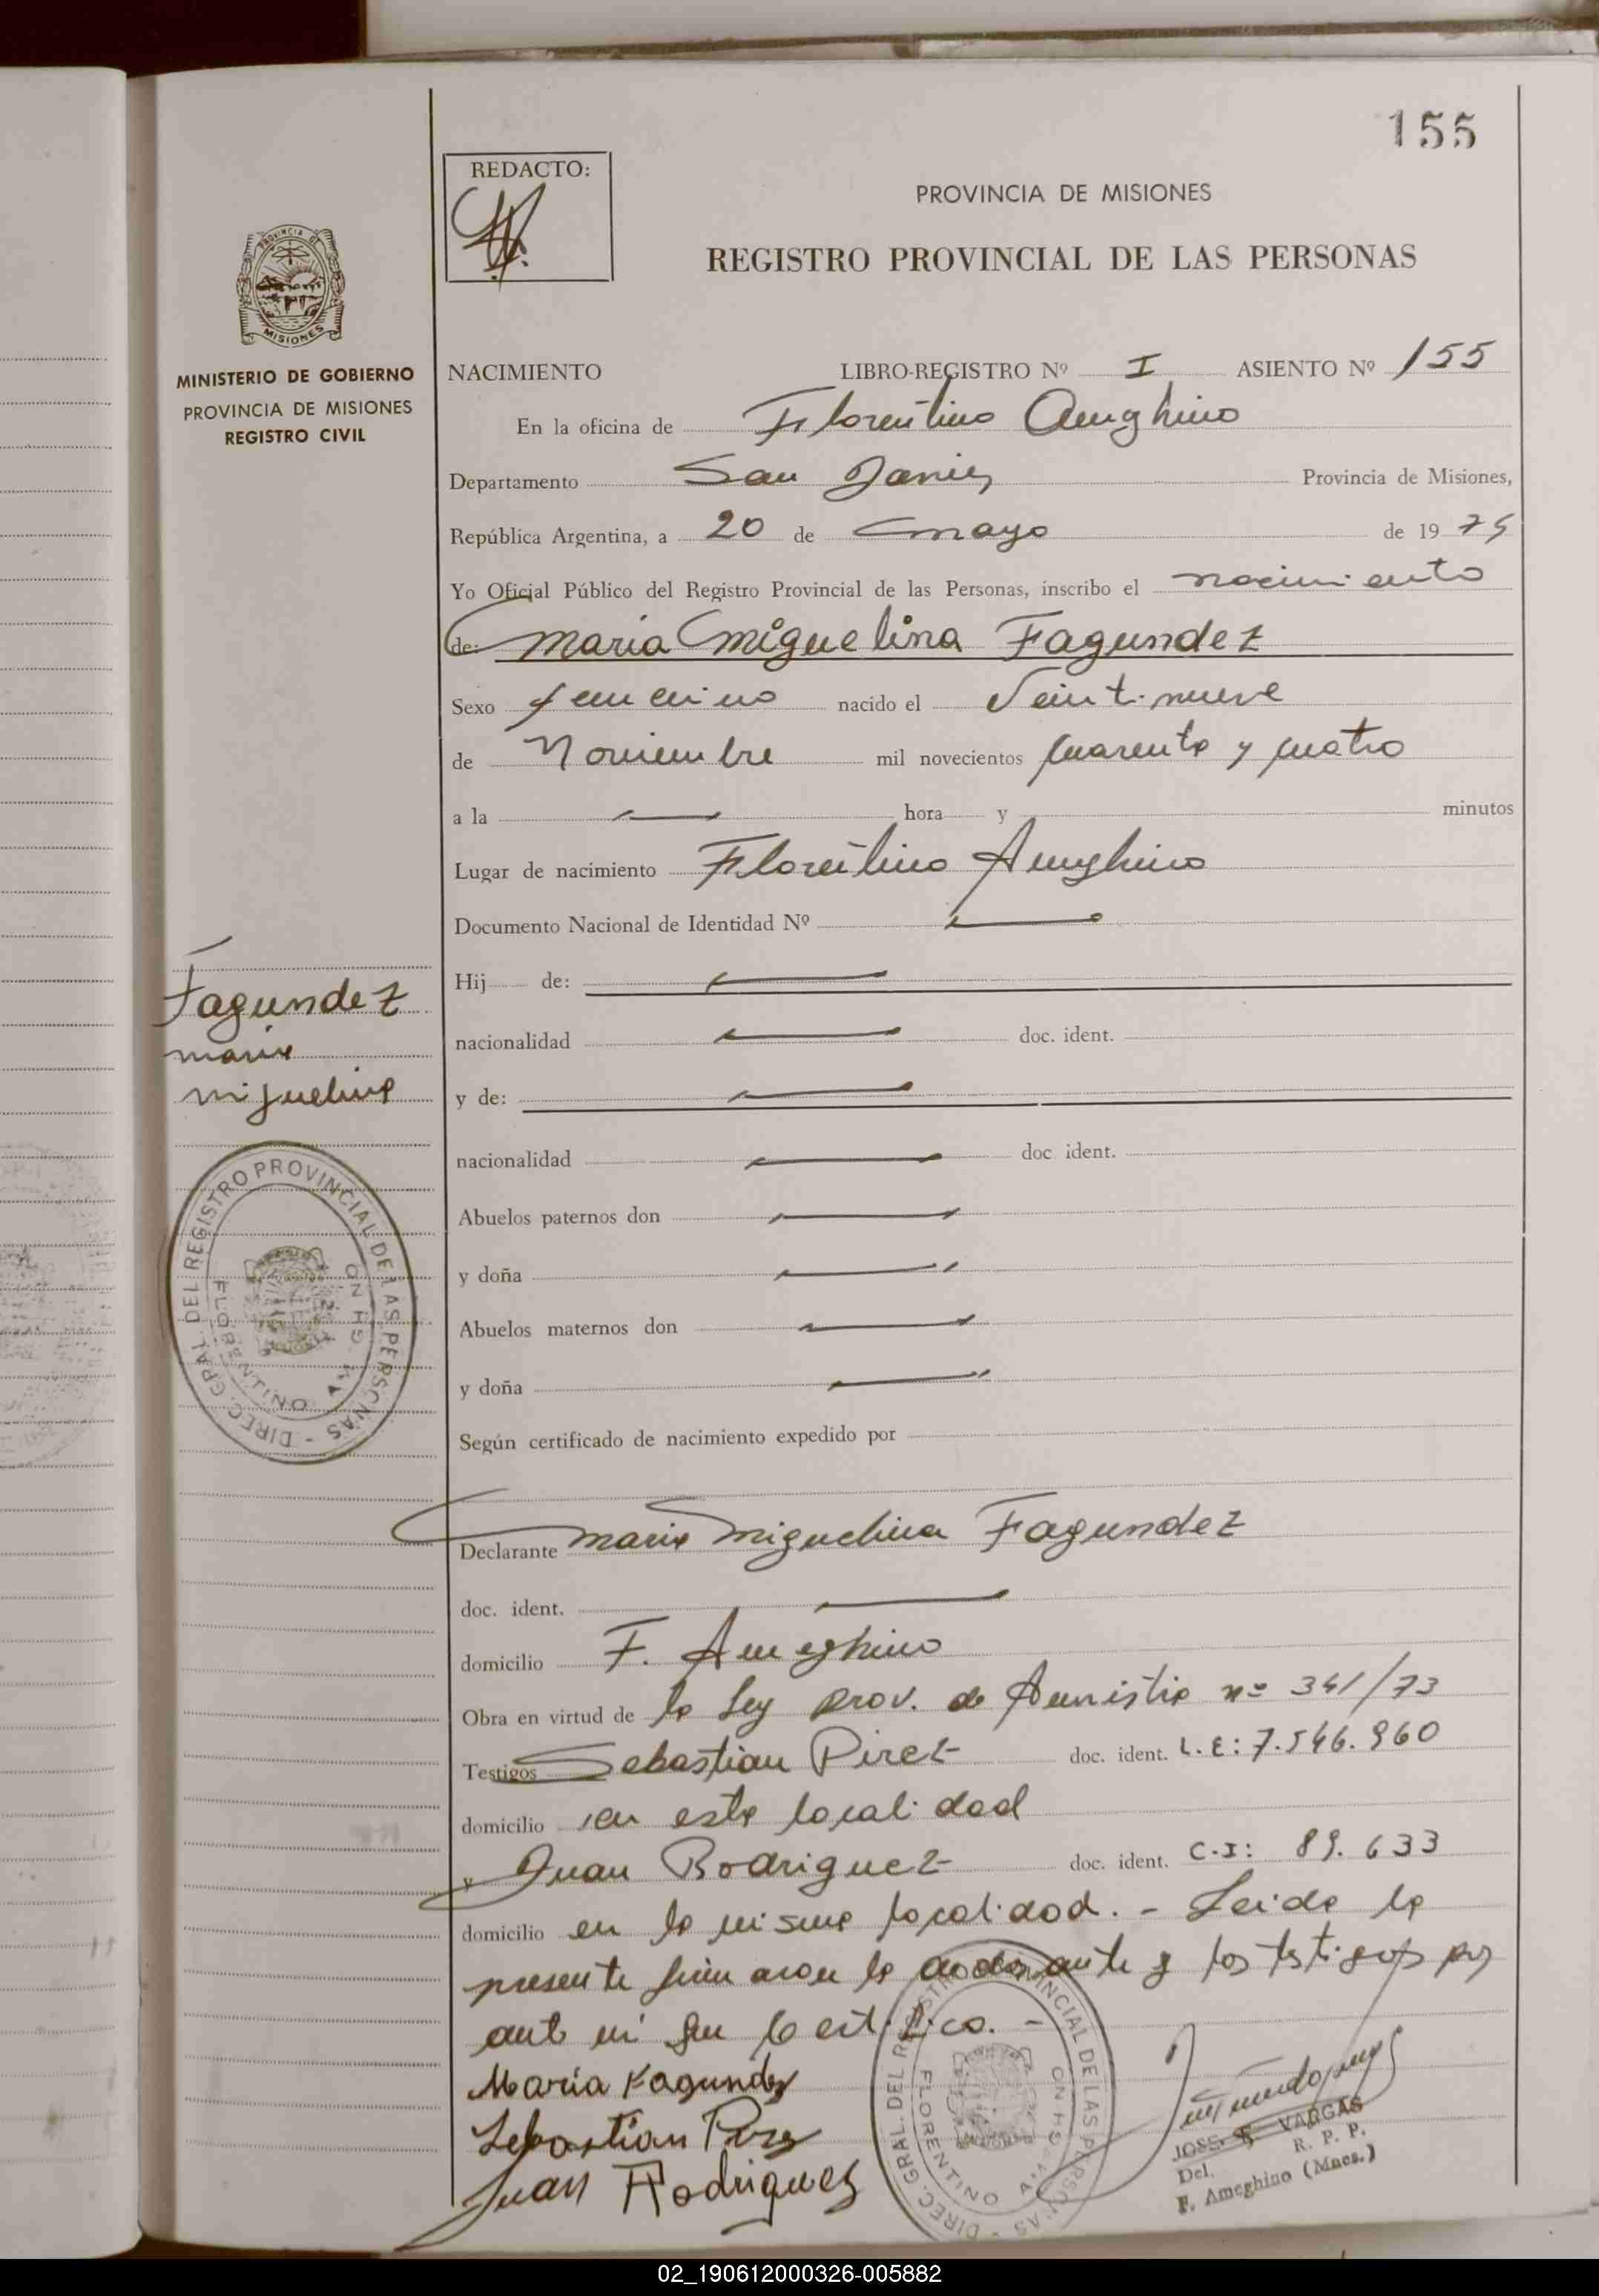 155
REDACTO:
PROVINCIA DE MISIONES
REGISTRO PROVINCIAL DE LAS PERSONAS
PROVINCIA DE
MISIONES
MINISTERIO DE GOBIERNO
PROVINCIA DE MISIONES
REGISTRO CIVIL
NACIMIENTO LIBRO-REGISTRO Nº I ASIENTO Nº 155
En la oficina de Florentino Ameghino
Departamento San Javier Provincia de Misiones,
República Argentina, a 20 de mayo de 1975
Yo Oficial Público del Registro Provincial de las Personas, inscribo el nacimiento
de: Maria Miguelina Fagundez
Sexo femenino nacido el Veintinueve
de Noviembre mil novecientos cuarenta y cuatro
a la — hora y minutos
Lugar de nacimiento Florentino Ameghino
Documento Nacional de Identidad Nº —
Hij de: —
nacionalidad — doc. ident.
y de: —
nacionalidad — doc. ident.
Abuelos paternos don —
y doña —
Abuelos maternos don —
y doña —
Según certificado de nacimiento expedido por
Declarante Maria Miguelina Fagundez
doc. ident. —
domicilio F. Ameghino
Obra en virtud de la Ley Prov. de Amnistia nº 341/73
Testigos Sebastian Pirez doc. ident. L.E: 7.546.960
domicilio en esta localidad
y Juan Rodriguez doc. ident. C.I: 89.633
domicilio en la misma localidad. - Leida la
presente firmaron la y los testigos por
ante mi que certifico. -
María Fagundez
Sebastian Pirez
Juan Rodriguez
JOSE VARGAS
Del. R. P. P.
F. Ameghino (Mnes.)
Fagundez
Maria
Miguelina
DIREC. GRAL. DEL REGISTRO PROVINCIAL DE LAS PERSONAS
FLORENTINO AMEGHINO
DIREC. GRAL. DEL REGISTRO PROVINCIAL DE LAS PERSONAS
FLORENTINO AMEGHINO
02_190612000326-005882